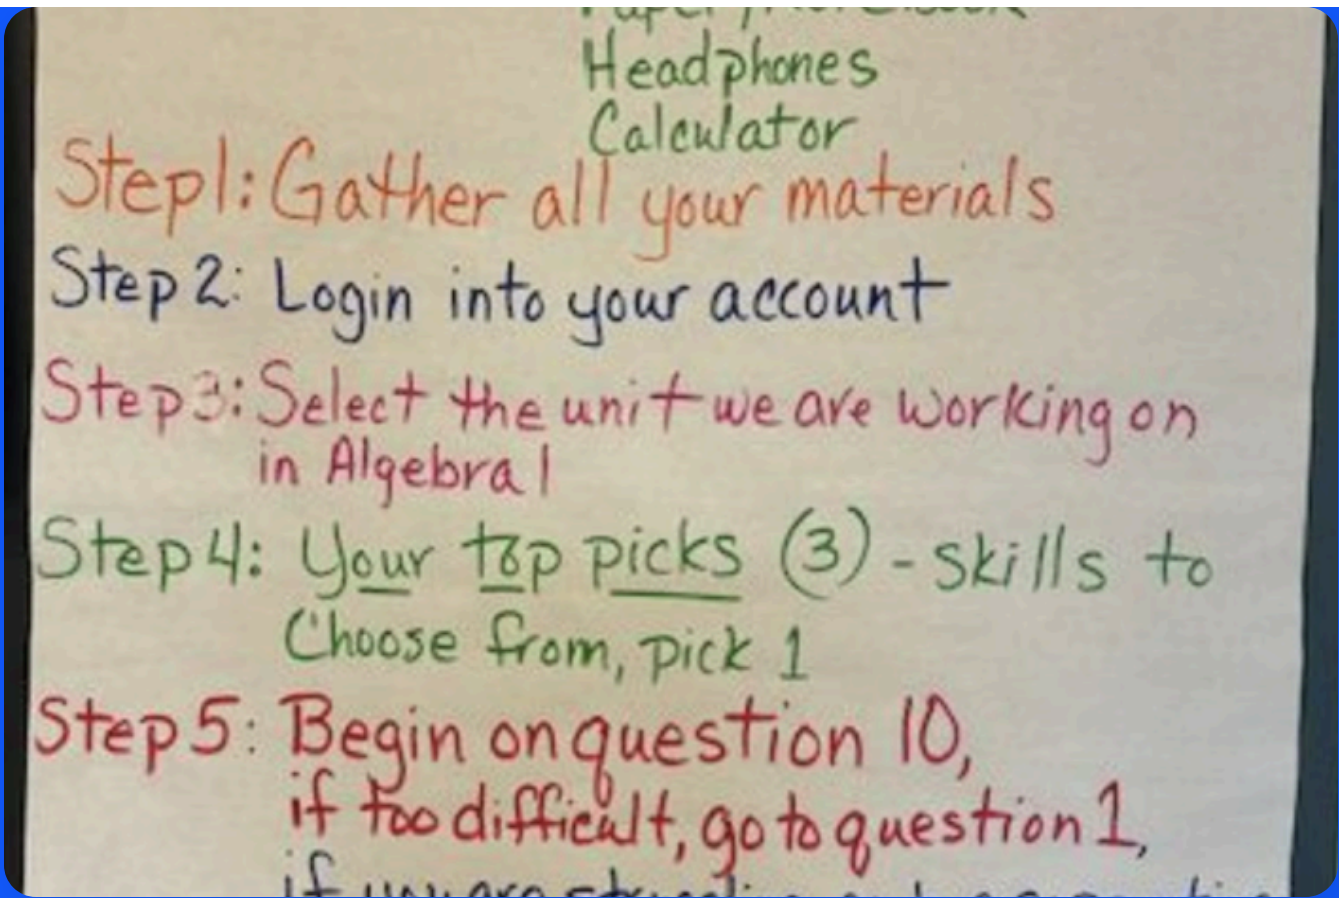 Headphones
Calculator
Step1: Gather all your materials
Step 2: Login into your account
Step 3: Select the unit we are working on
in Algebra 1
Step 4: Your top picks (3) - skills to
Choose from, pick 1
Step 5: Begin on question 10,
if too difficult, go to question 1,
if you are